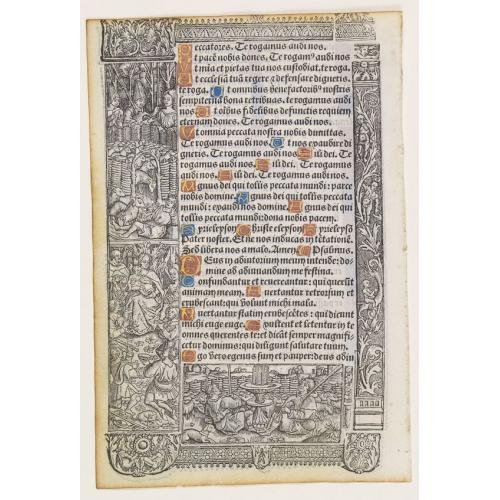 eccatores. Te rogamus audi nos.
t pacē nobis dones. Te rogamꝰ audi nos.
t mīa et pietas tua nos custodiat. te roga.
t ecclesiā tuā regere ⁊ defensare digneris.
te roga. Ut omnibus benefactoribꝰ nostris
sempiterna bona retribuas. te rogamus audi
nos. Ut oībus fidelibus defunctis requiem
eternam dones. Te rogamus audi nos.
Ut omnia peccata nostra nobis dimittas.
Te rogamus audi nos. Ut nos exaudire di
gneris. Te rogamus audi nos. ili dei. Te
rogamus audi nos. ili dei. Te rogamus
audi nos. ili dei. Te rogamus audi nos.
Agnus dei qui tollis peccata mundi: parce
nobis domine. Agnus dei qui tollis peccata
mundi: exaudi nos domine. Agnus dei qui
tollis peccata mundi: dona nobis pacem.
Kyrieleyson Christe eleyson Kyrieleysō
Pater noster. Et ne nos inducas in tētationē.
Sed libera nos a malo. Amen. Psalmus.
Deus in adiutorium meum intende: do-
mine ad adiuvandum me festina.
Confundantur et revereantur: qui querūt
animam meam. Avertantur retrorsum et
erubescant: qui volunt michi mala.
Avertantur statim erubescētes: qui dicunt
michi euge euge. Exultent et letentur in te
omnes querentes te: et dicāt semper magnifi-
cetur dominus: qui diligunt salutare tuum.
Ego vero egenus sum et pauper: deus adiu